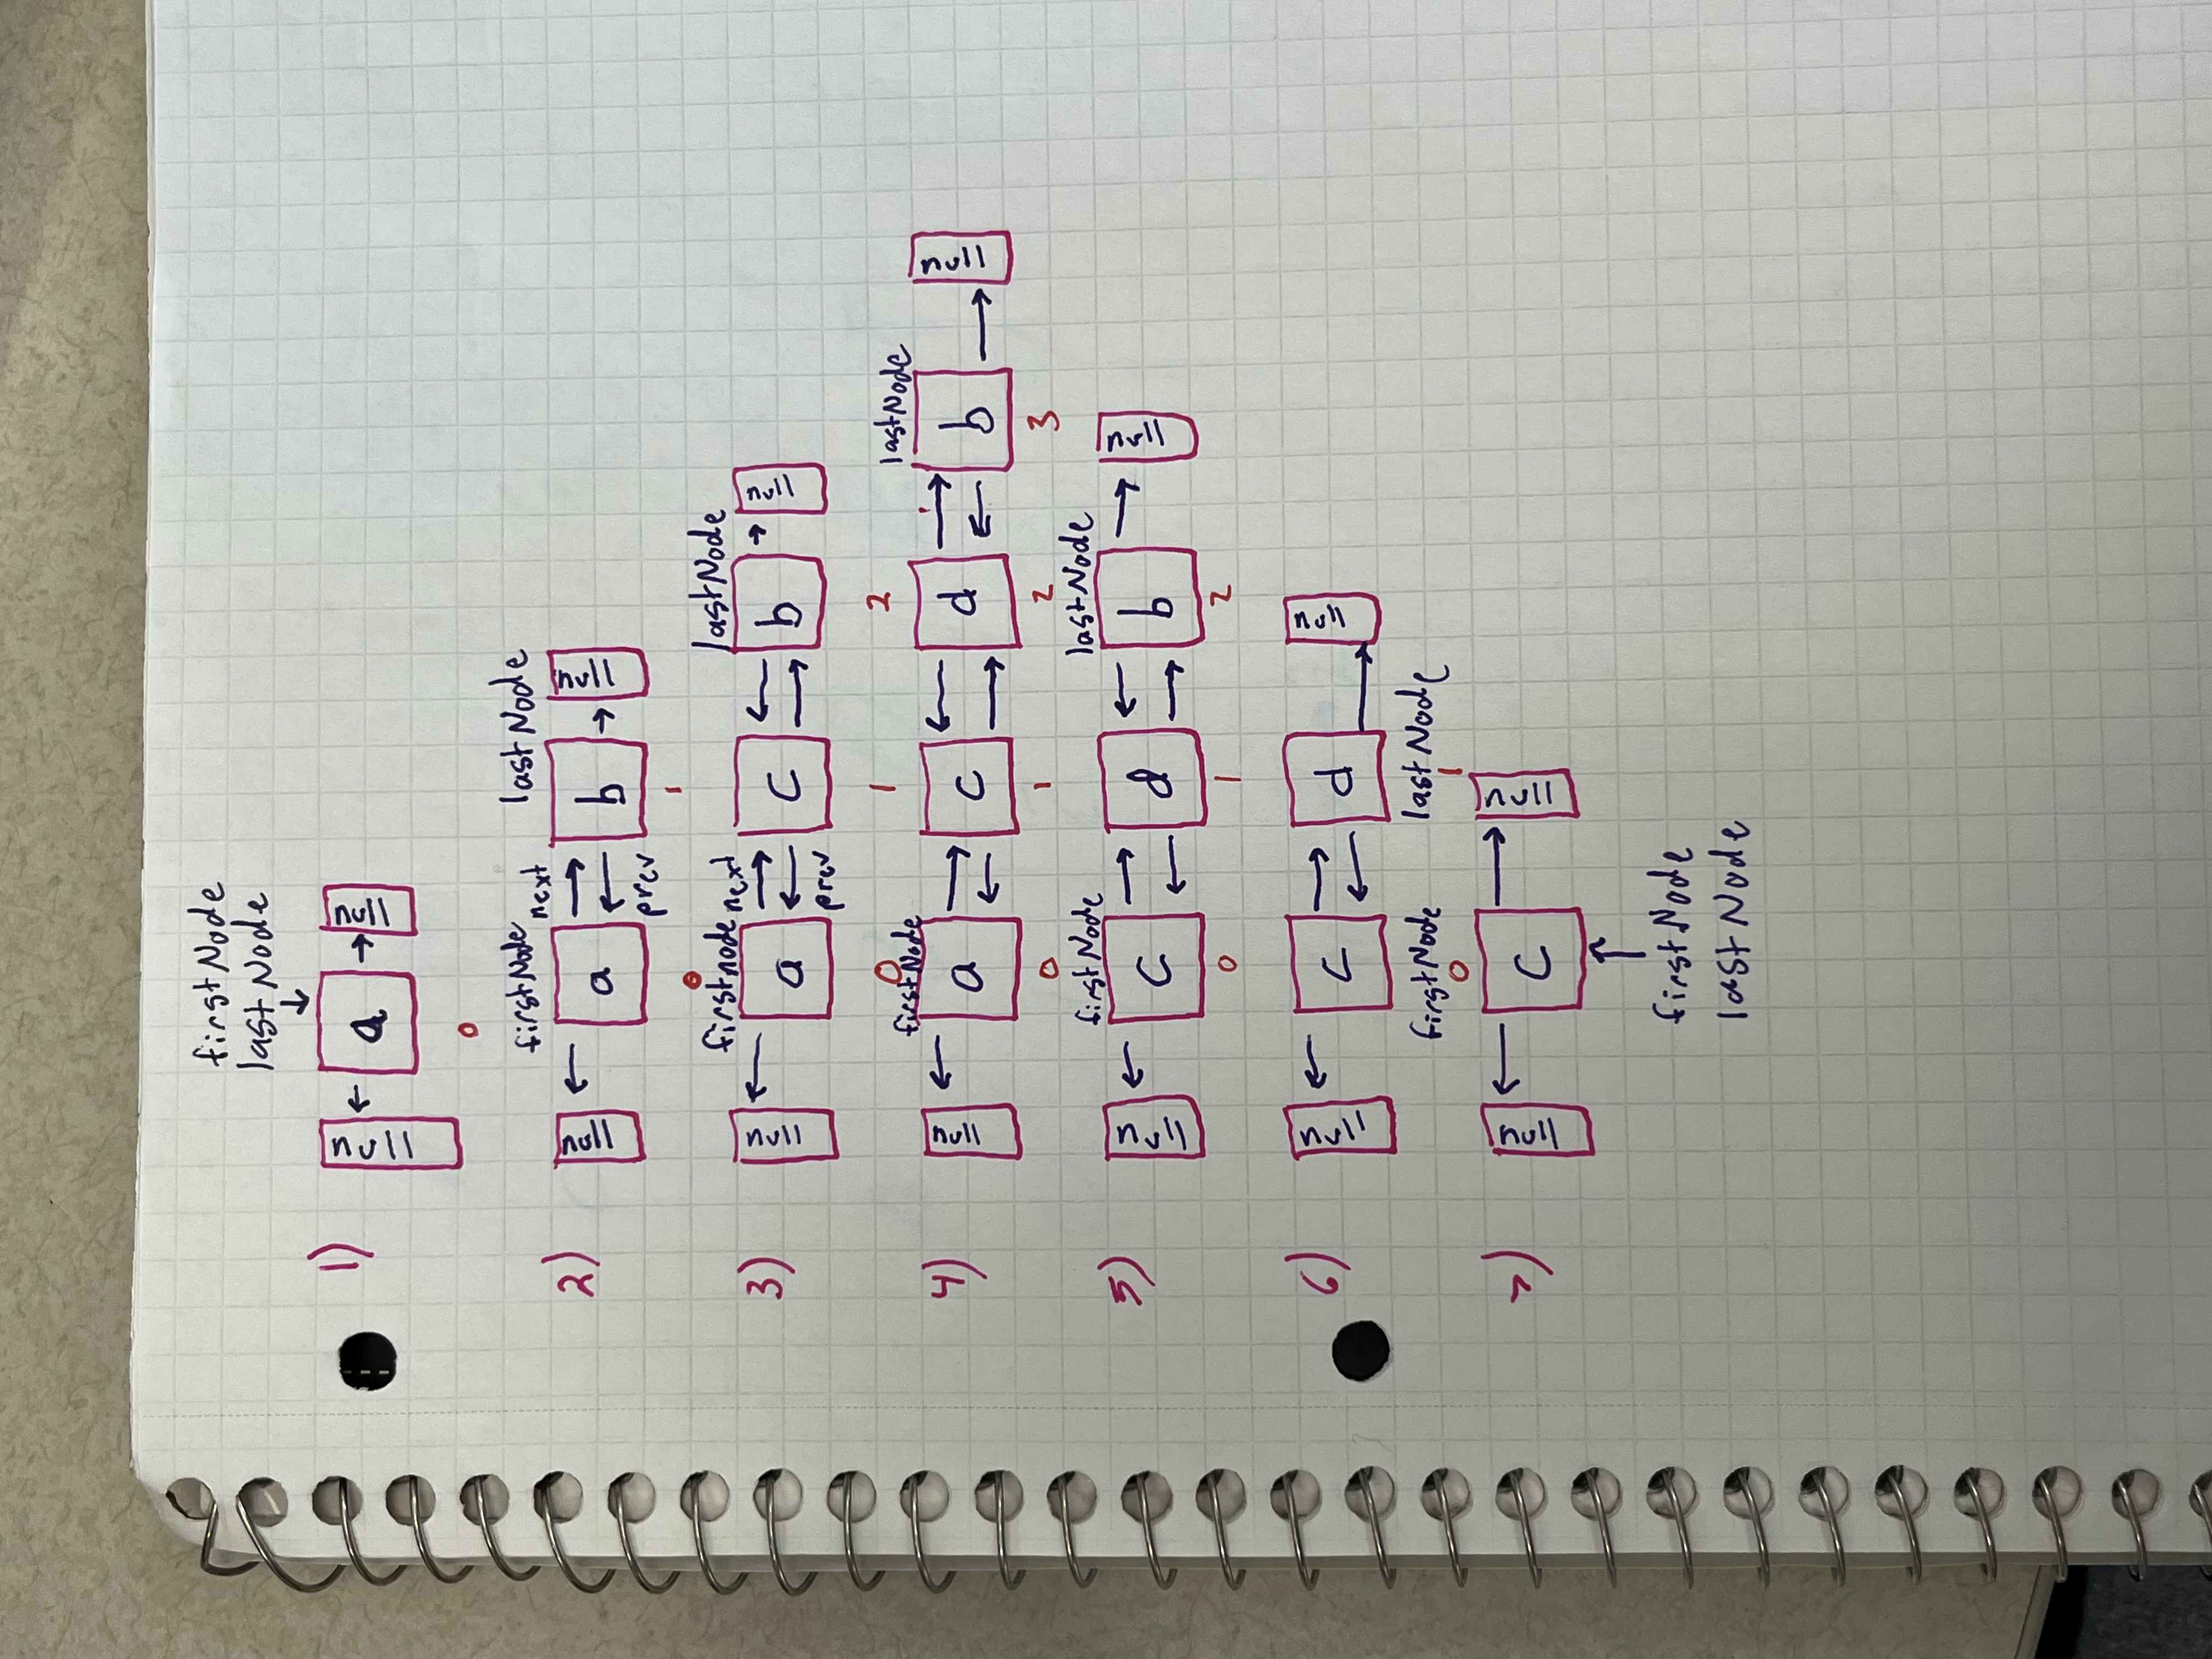 firstNode
lastNode
1) null a null
0
firstNode next lastNode
2) null a b null
prev
0 1
firstnode next lastNode
3) null a c b null
prev
0 1 2
firstNode lastNode
4) null a c d b null
0 1 2 3
firstNode lastNode
5) null c d b null
0 1 2
6) null c d null
firstNode lastNode
0 1
7) null c null
firstNode
lastNode